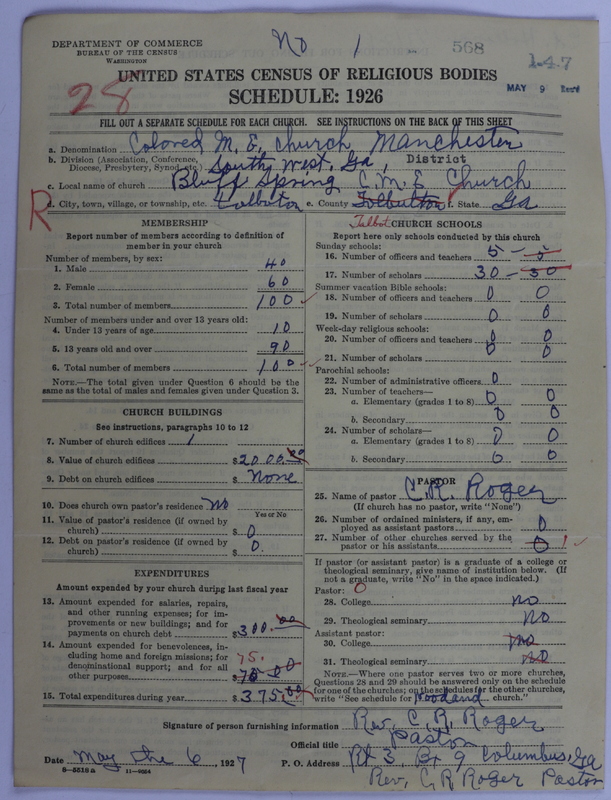 DEPARTMENT OF COMMERCE
BUREAU OF THE CENSUS
WASHINGTON
No 1
568
147
MAY 9
28
UNITED STATES CENSUS OF RELIGIOUS BODIES
SCHEDULE: 1926
FILL OUT A SEPARATE SCHEDULE FOR EACH CHURCH. SEE INSTRUCTIONS ON THE BACK OF THIS SHEET
a. Denomination Colored M. E. Church Manchester
b. Division (Association, Conference, Diocese, Presbytery, Synod, etc.) South West, Ga, District
c. Local name of church Bluff Spring C.M.E. Church
R
d. City, town, village, or township, etc. Talbotton e. County Talbutton Talbot f. State Ga
MEMBERSHIP
Report number of members according to definition of member in your church
Number of members, by sex:
1. Male 40
2. Female 60
3. Total number of members 100
Number of members under and over 13 years old:
4. Under 13 years of age 10
5. 13 years old and over 90
6. Total number of members 100
NOTE.—The total given under Question 6 should be the same as the total of males and females given under Question 3.
CHURCH BUILDINGS
See instructions, paragraphs 10 to 12
7. Number of church edifices 1
8. Value of church edifices $2000.00
9. Debt on church edifices $ None
10. Does church own pastor's residence No
Yes or No
11. Value of pastor's residence (if owned by church) $ 0
12. Debt on pastor's residence (if owned by church) $ 0.
EXPENDITURES
Amount expended by your church during last fiscal year
13. Amount expended for salaries, repairs, and other running expenses; for improvements or new buildings; and for payments on church debt $300.00
14. Amount expended for benevolences, including home and foreign missions; for denominational support; and for all other purposes 75. $75.00
15. Total expenditures during year $375.00
CHURCH SCHOOLS
Report here only schools conducted by this church
Sunday schools:
16. Number of officers and teachers 5 — 5
17. Number of scholars 30 — 30
Summer vacation Bible schools:
18. Number of officers and teachers 0 0
19. Number of scholars 0 0
Week-day religious schools:
20. Number of officers and teachers 0 0
21. Number of scholars 0 0
Parochial schools:
22. Number of administrative officers 0
23. Number of teachers—
a. Elementary (grades 1 to 8) 0 0
b. Secondary 0 0
24. Number of scholars—
a. Elementary (grades 1 to 8) 0 0
b. Secondary 0 0
PASTOR
25. Name of pastor C. R. Roger
(If church has no pastor, write "None")
26. Number of ordained ministers, if any, employed as assistant pastors 0
27. Number of other churches served by the pastor or his assistants 0 1
If pastor (or assistant pastor) is a graduate of a college or theological seminary, give name of institution below. (If not a graduate, write "No" in the space indicated.)
Pastor: 0
28. College no
29. Theological seminary No
Assistant pastor:
30. College no
31. Theological seminary no
NOTE.—Where one pastor serves two or more churches, Questions 28 and 29 should be answered only on the schedule for one of the churches; on the schedules for the other churches, write "See schedule for Woodland church."
Signature of person furnishing information Rev. C. R. Roger
Official title Pastor
Date May the 6, 1927 P. O. Address Rt 3, Bx 9 Columbus, Ga
8—5516 a 11—9024
Rev, C R Roger Pastor